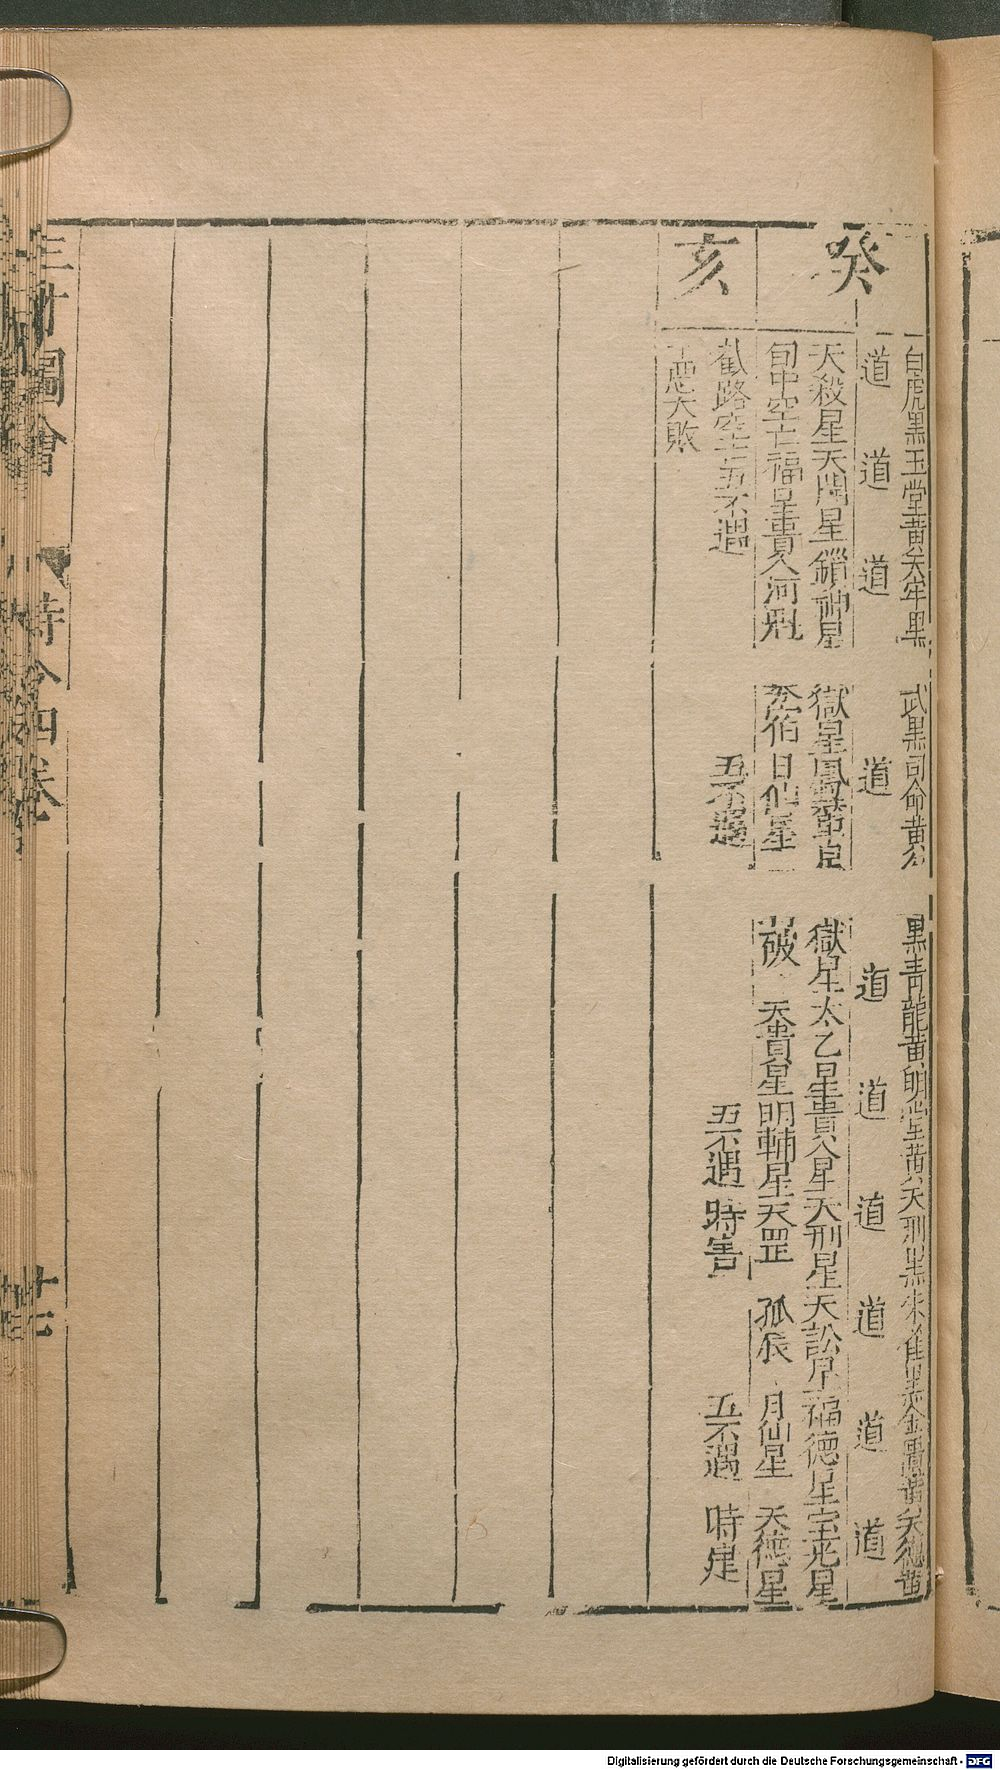 癸
亥
白虎黑玉堂黄天牢黒
武黒司命黄
黒青龍黄明堂黄天刑黒朱雀黒金匱黄天德黄
道 道 道 道 道 道 道 道 道 道
天殺星天開星鎖神星
獄星鳳輦
獄星太乙星貴人星天刑星天訟星福德星宝光星
旬中空亡福星貴人河魁
日仙星
破 天貴星明輔星天罡 孤辰 月仙星 天德星
截路空亡五不遇
五不遇
五不遇 時害 五不遇 時建
十惡大敗
三才圖會
時令四卷
廿七
Digitalisierung gefördert durch die Deutsche Forschungsgemeinschaft - DFG